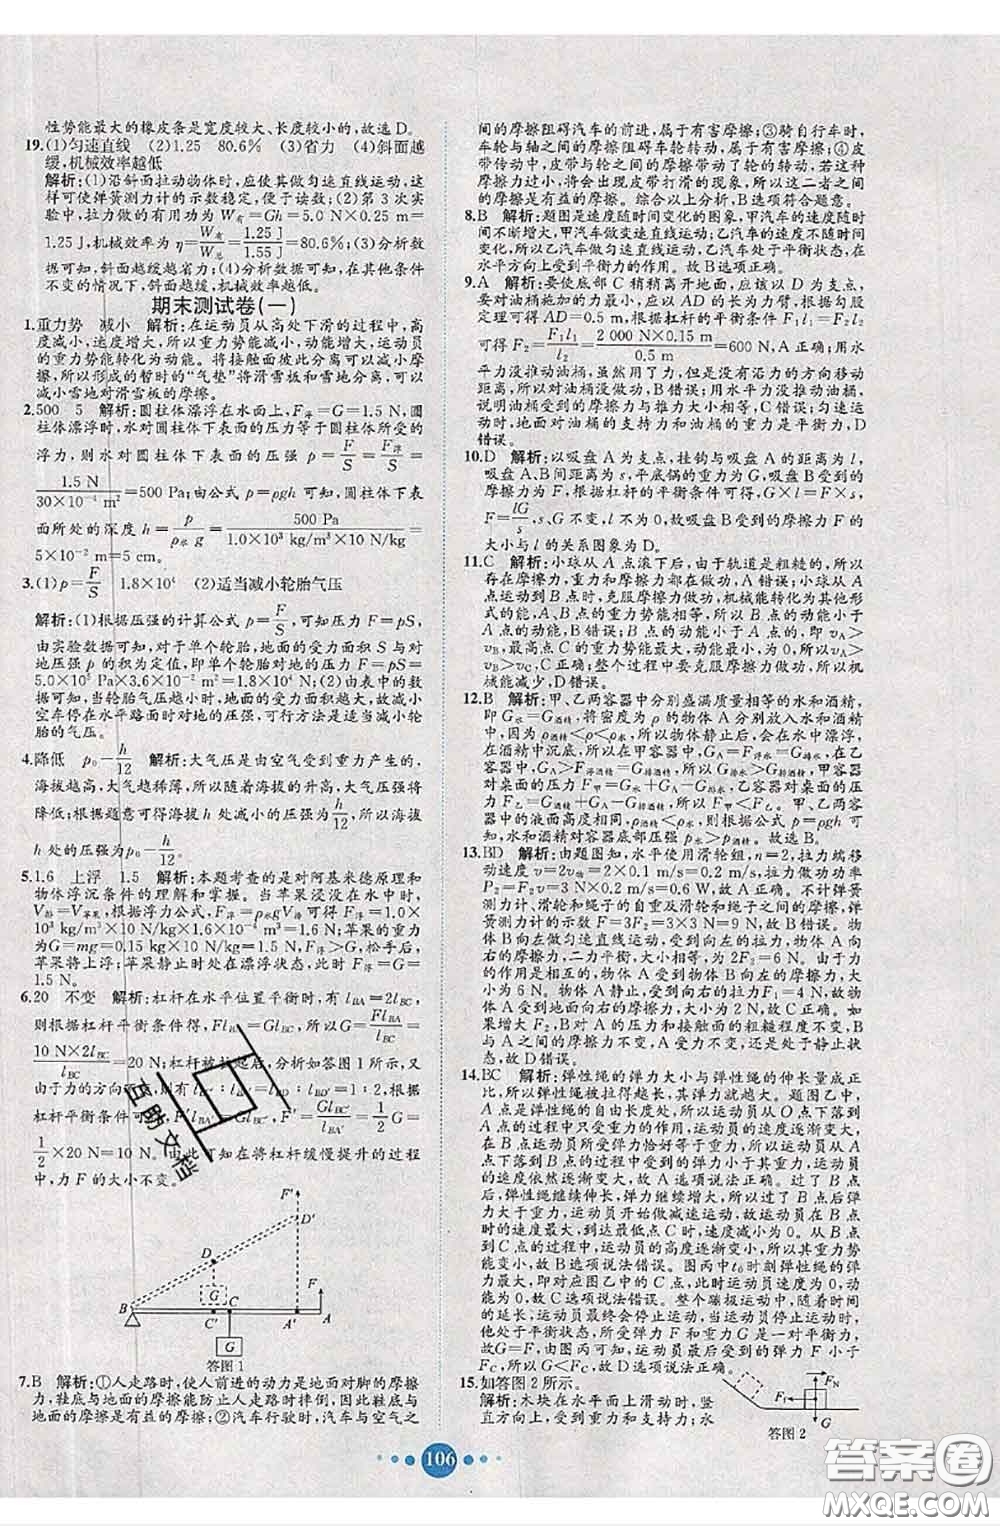 性势能最大的橡皮条是宽度较大、长度较小的,故选D。
19.(1)匀速直线 (2)1.25 80.6% (3)省力 (4)斜面越
缓,机械效率越低
解析:(1)沿斜面拉动物体时,应使其做匀速直线运动,
这样可使弹簧测力计的示数稳定,便于读数;(2)第3次实
验中,拉力做的有用功为W有=Gh=5.0 N×0.25 m=
1.25 J,机械效率为η=W有/W总=1.25 J/1.55 J=80.6%;(3)分析数
据可知,斜面越缓越省力;(4)分析数据可知,在其他条件
不变的情况下,斜面越缓,机械效率越低。
期末测试卷(一)
1.重力势 减小 解析:在运动员从高处下滑的过程中,高
度减小,速度增大,所以重力势能减小,动能增大,运动
员的重力势能转化为动能。将接触面彼此分离可以减小摩
擦,所以形成的暂时的“气垫”将滑雪板和雪地分离,可以
减小雪地对滑雪板的摩擦。
2.500 5 解析:圆柱体漂浮在水面上,F浮=G=1.5 N,
同时,水对圆柱体下表面的压力等于圆柱体所受的浮
力,则水对圆柱体下表面的压强 p=F/S=F浮/S=
1.5 N/30×10⁻⁴ m²=500 Pa;由公式 p=ρgh 可知,圆柱体下表
面所处的深度 h=p/ρ水g=500 Pa/1.0×10³ kg/m³×10 N/kg=
5×10⁻² m=5 cm。
3.(1)p=F/S 1.8×10⁴ (2)适当减小轮胎气压
解析:(1)根据压强的计算公式p=F/S,可知压力F=pS,
由实验数据可知,对单个轮胎,地面的受力面积 S 与对
地压强 p 的积为定值,即单个轮胎对地的压力 F=pS=
5.0×10⁵ Pa×3.6×10⁻² m²=1.8×10⁴ N;(2)由表中的数
据可知,当轮胎气压越小时,地面的受力面积越大,故减小
空车停在水平路面时对地的压强,可行方法是适当减小轮
胎的气压。
4.降低 p₀-h/12 解析:大气压是由空气受到重力产生的,
海拔越高,大气越稀薄,所以随着海拔的升高,大气压强
降低;根据题意可得海拔 h 处减小的压强为h/12,所以海拔
h 处的压强为p₀-h/12。
5.1.6 上浮 1.5 解析:本题考查的是对阿基米德原理和
物体浮沉条件的理解和掌握。当苹果浸没在水中时,
V排=V苹果,根据浮力公式,F浮=ρ水gV排可得 F浮=1.0×
10³ kg/m³×10 N/kg×1.6×10⁻⁴ m³=1.6 N;苹果的重力
为G=mg=0.15 kg×10 N/kg=1.5 N,F浮>G,松手后,
苹果将上浮;苹果静止时处在漂浮状态,此时 F浮=G=
1.5 N。
6.20 不变 解析:杠杆在水平位置平衡时,有 lBA=2lBC,
则根据杠杆平衡条件得,FlBA=GlBC,所以G=FlBA/lBC=
10 N×2lBC/lBC=20 N;杠杆被抬起后,分析如答图1所示,又
由于力的方向不变,则有
杠杆平衡条件可得,F′lBA′=GlBC′,F′=GlBC′/lBA′=1/2 G=
1/2×20 N=10 N。由此可知在将杠杆缓慢提升的过程
中,力 F 的大小不变。
F′
D′
D
G
F
B
C
C′
A′
A
G
答图1
7.B 解析:①人走路时,使人前进的动力是地面对脚的摩擦
力,鞋底与地面的摩擦能防止人走路时摔倒,因此鞋底与
地面的摩擦是有益的摩擦;②汽车行驶时,汽车与空气之
间的摩擦阻碍汽车的前进,属于有害摩擦;③骑自行车时,
车轮与轴之间的摩擦阻碍车轮转动,属于有害摩擦;④皮
带传动中,皮带与轮之间的摩擦带动了轮的转动。若这种
摩擦过小,则会出现皮带打滑的现象,所以这二者之间的
摩擦是有益的摩擦。综合以上分析,B选项符合题意。
8.B 解析:题图是速度随时间变化的图象,甲汽车的速度随时
间不断增大,甲汽车做变速直线运动;乙汽车的速度不随时间变
化,所以乙汽车做匀速直线运动,乙汽车处于平衡状态,在
水平方向上受到平衡力的作用。故 B 选项正确。
9.A 解析:要使底部 C 稍稍离开地面,应该以 D 为支点,
要对油桶施加的力最小,则应该以 AD 长为力臂,根据勾股
定理可得 AD=0.5 m,根据杠杆的平衡条件 F₁l₁=F₂l₂
可得 F₂=F₁l₁/l₂=2 000 N×0.15 m/0.5 m=600 N,A正确;用水
平力没推动油桶,虽然用了力,但是没有沿力的方向移动
距离,所以对油桶没有做功,B 错误;用水平力没推动油桶,
说明油桶受到的摩擦力与推力大小相等,C 错误;匀速运
动时,地面对油桶的支持力和油桶的重力是平衡力,D
错误。
10.D 解析:以吸盘 A 为支点,挂钩与吸盘 A 的距离为 l,
吸盘 A、B 间距离为 s,平底锅的重力为 G,吸盘 B 受到的
摩擦力为 F,根据杠杆的平衡条件可得,G×l=F×s,
F=lG/s,s、G 不变,l 不为 0,故吸盘 B 受到的摩擦力 F 的
大小与 l 的关系图象为 D。
11.C 解析:小球从 A 点滚下后,由于轨道是粗糙的,所以
存在摩擦力,重力和摩擦力做功,A 错误;小球从 A 点
运动到 B 点时,克服摩擦力做功,机械能转化为其他形
式的能,A、B 点的重力势能相等,所以 B 点的动能小于
A 点的动能,B错误;B 点的动能小于 A 点的,即 vA>
vB,最高点 C 的重力势能最大,动能最小,所以 vA>
vB>vC,C 正确;整个过程中要克服摩擦力做功,所以机
械能减少,D错误。
12.B 解析:甲、乙两容器中分别盛满质量相等的水和酒精,
即 G水=G酒精,将密度为 ρ 的物体 A 分别放入水和酒精
中,因为 ρ酒精<ρ<ρ水,所以物体静止后,会在水中漂浮,
在酒精中沉底,所以在甲容器中,GA=F浮水=G排水,在乙
容器中,GA>F浮酒精=G排酒精,所以,甲容器
对桌面的压力 F甲=G水+GA-G排水,乙容器对桌面的压
力 F乙=G酒精+GA-G排酒精,所以 F甲<F乙。甲、乙两容
器中的液面高度相同,ρ酒精<ρ水,则根据公式 p=ρgh 可
知,水和酒精对容器底部压强 p水>p酒精。故选B。
13.BD 解析:由题图知,水平使用滑轮组,n=2,拉力端移
动速度 v=2v物=2×0.1 m/s=0.2 m/s,拉力做功功率
P=F₂v=3 N×0.2 m/s=0.6 W,A错误。不计弹簧测
力计、滑轮和绳子的自重及滑轮和绳子之间的摩擦,弹
簧测力计的示数 F=3F₂=3×3 N=9 N,故B正确。物
体 B 向左做匀速直线运动,受到向左的拉力,向右的摩
擦力,二力平衡,大小为 2F₂=3 N×2=6 N。由于力的
作用是相互的,所以此时 A 受到物体 B 向左的摩擦力,大
小为 6 N。物体 A 静止,所以受到向左的摩擦力等于
向右的拉力加上地面的摩擦力,由于向右的拉力F₁=4 N,
所以受到地面向右的摩擦力,大小为 2 N,故C错误。如
果增大 F₂,B 对 A 的压力和接触面的粗糙程度不变,B
与 A 之间的摩擦力不变,A 受力不变,还是处于静止状
态,故D错误。
14.BC 解析:弹性绳的弹力大小与弹性绳的伸长量成正
比,所以弹性绳被拉得越长,其弹力就越大。图乙 A 点
的位置是弹性绳的自由长度处,所以运动员从 O 点至 A
点的过程中只受重力的作用,运动员的速度逐渐变大,
在 B 点时运动员所受弹力恰好等于重力,当运动员从
A 点至 B 点的过程中,受到的重力大于弹力,运动员的
速度依然逐渐变大,故A选项说法正确。过了 B 点
后,弹性绳继续伸长,弹力继续增大,运动员受到的弹
力大于重力,运动员开始做减速运动,故运动员在 B 点
时的速度最大,到达最低点 C 时,速度减小为0。运动员从
O→C 的过程中,运动员的高度逐渐变小,所以其重力势
能变小,故B选项说法错误。图丙中 t₆时刻弹性绳的弹
力最大,即对应图乙中的 C 点,此时速度应为 0,不是动能
最大,故C选项说法错误。整个蹦极运动中,随着时间
的延长,运动员最终会停止运动,运动员停止运动时,处
于平衡状态,所受弹力 F 和重力 G 大小相等,即
F=G,由图丙可知,运动员受到的弹力 F 小于
FC,所以G<FC,故D选项说法正确。
15.如答图 2 所示。
解析:木块在水平面上滑动时,竖
直方向上,受到重力和支持力;水
F_N
F₁
G
答图 2
106
互助文档
答案圈
MXQE.COM